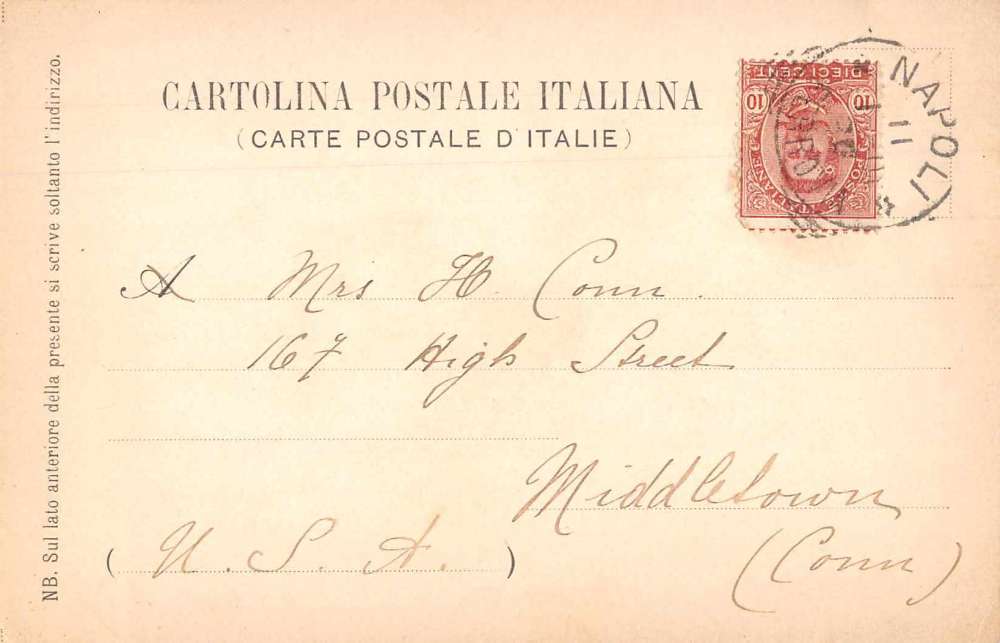 CARTOLINA POSTALE ITALIANA
(CARTE POSTALE D'ITALIE)
NB. Sul lato anteriore della presente si scrive soltanto l'indirizzo.
10 10
DIECI CENT.
NAPOLI
11
A Mrs H. Conn.
167 High Street
Middletown
(U. S. A.)
(Conn)